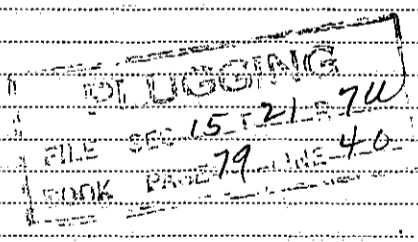 PLUGGING
FILE SEC 15 T 21 R 7W
BOOK PAGE 79 LINE 40